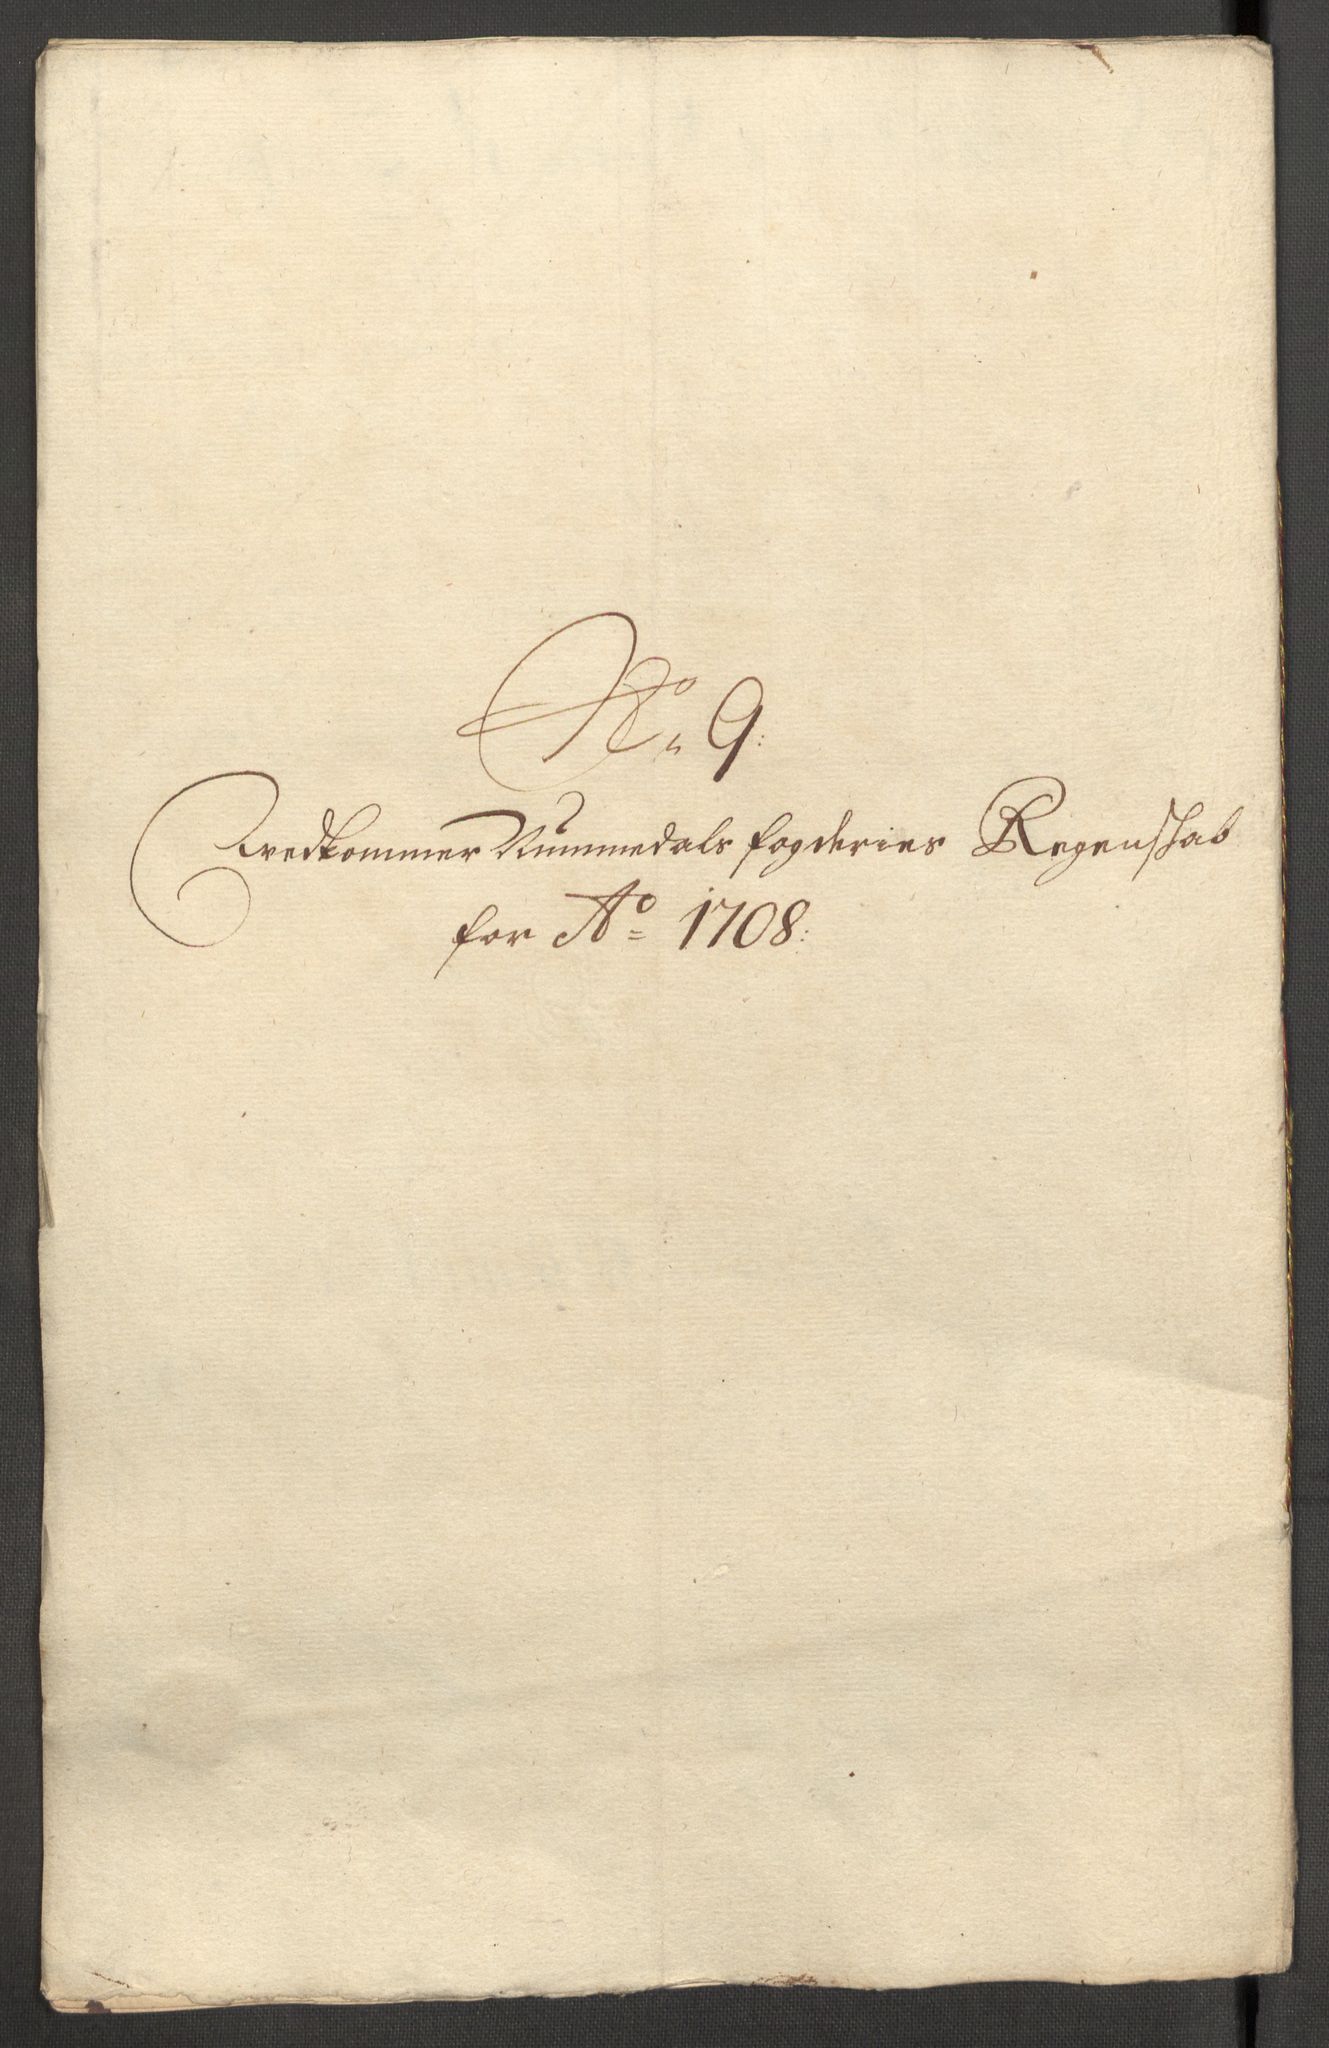 No. 9:
Vedkommer Nummedals fogderies Regenschab
for Ao= 1708: